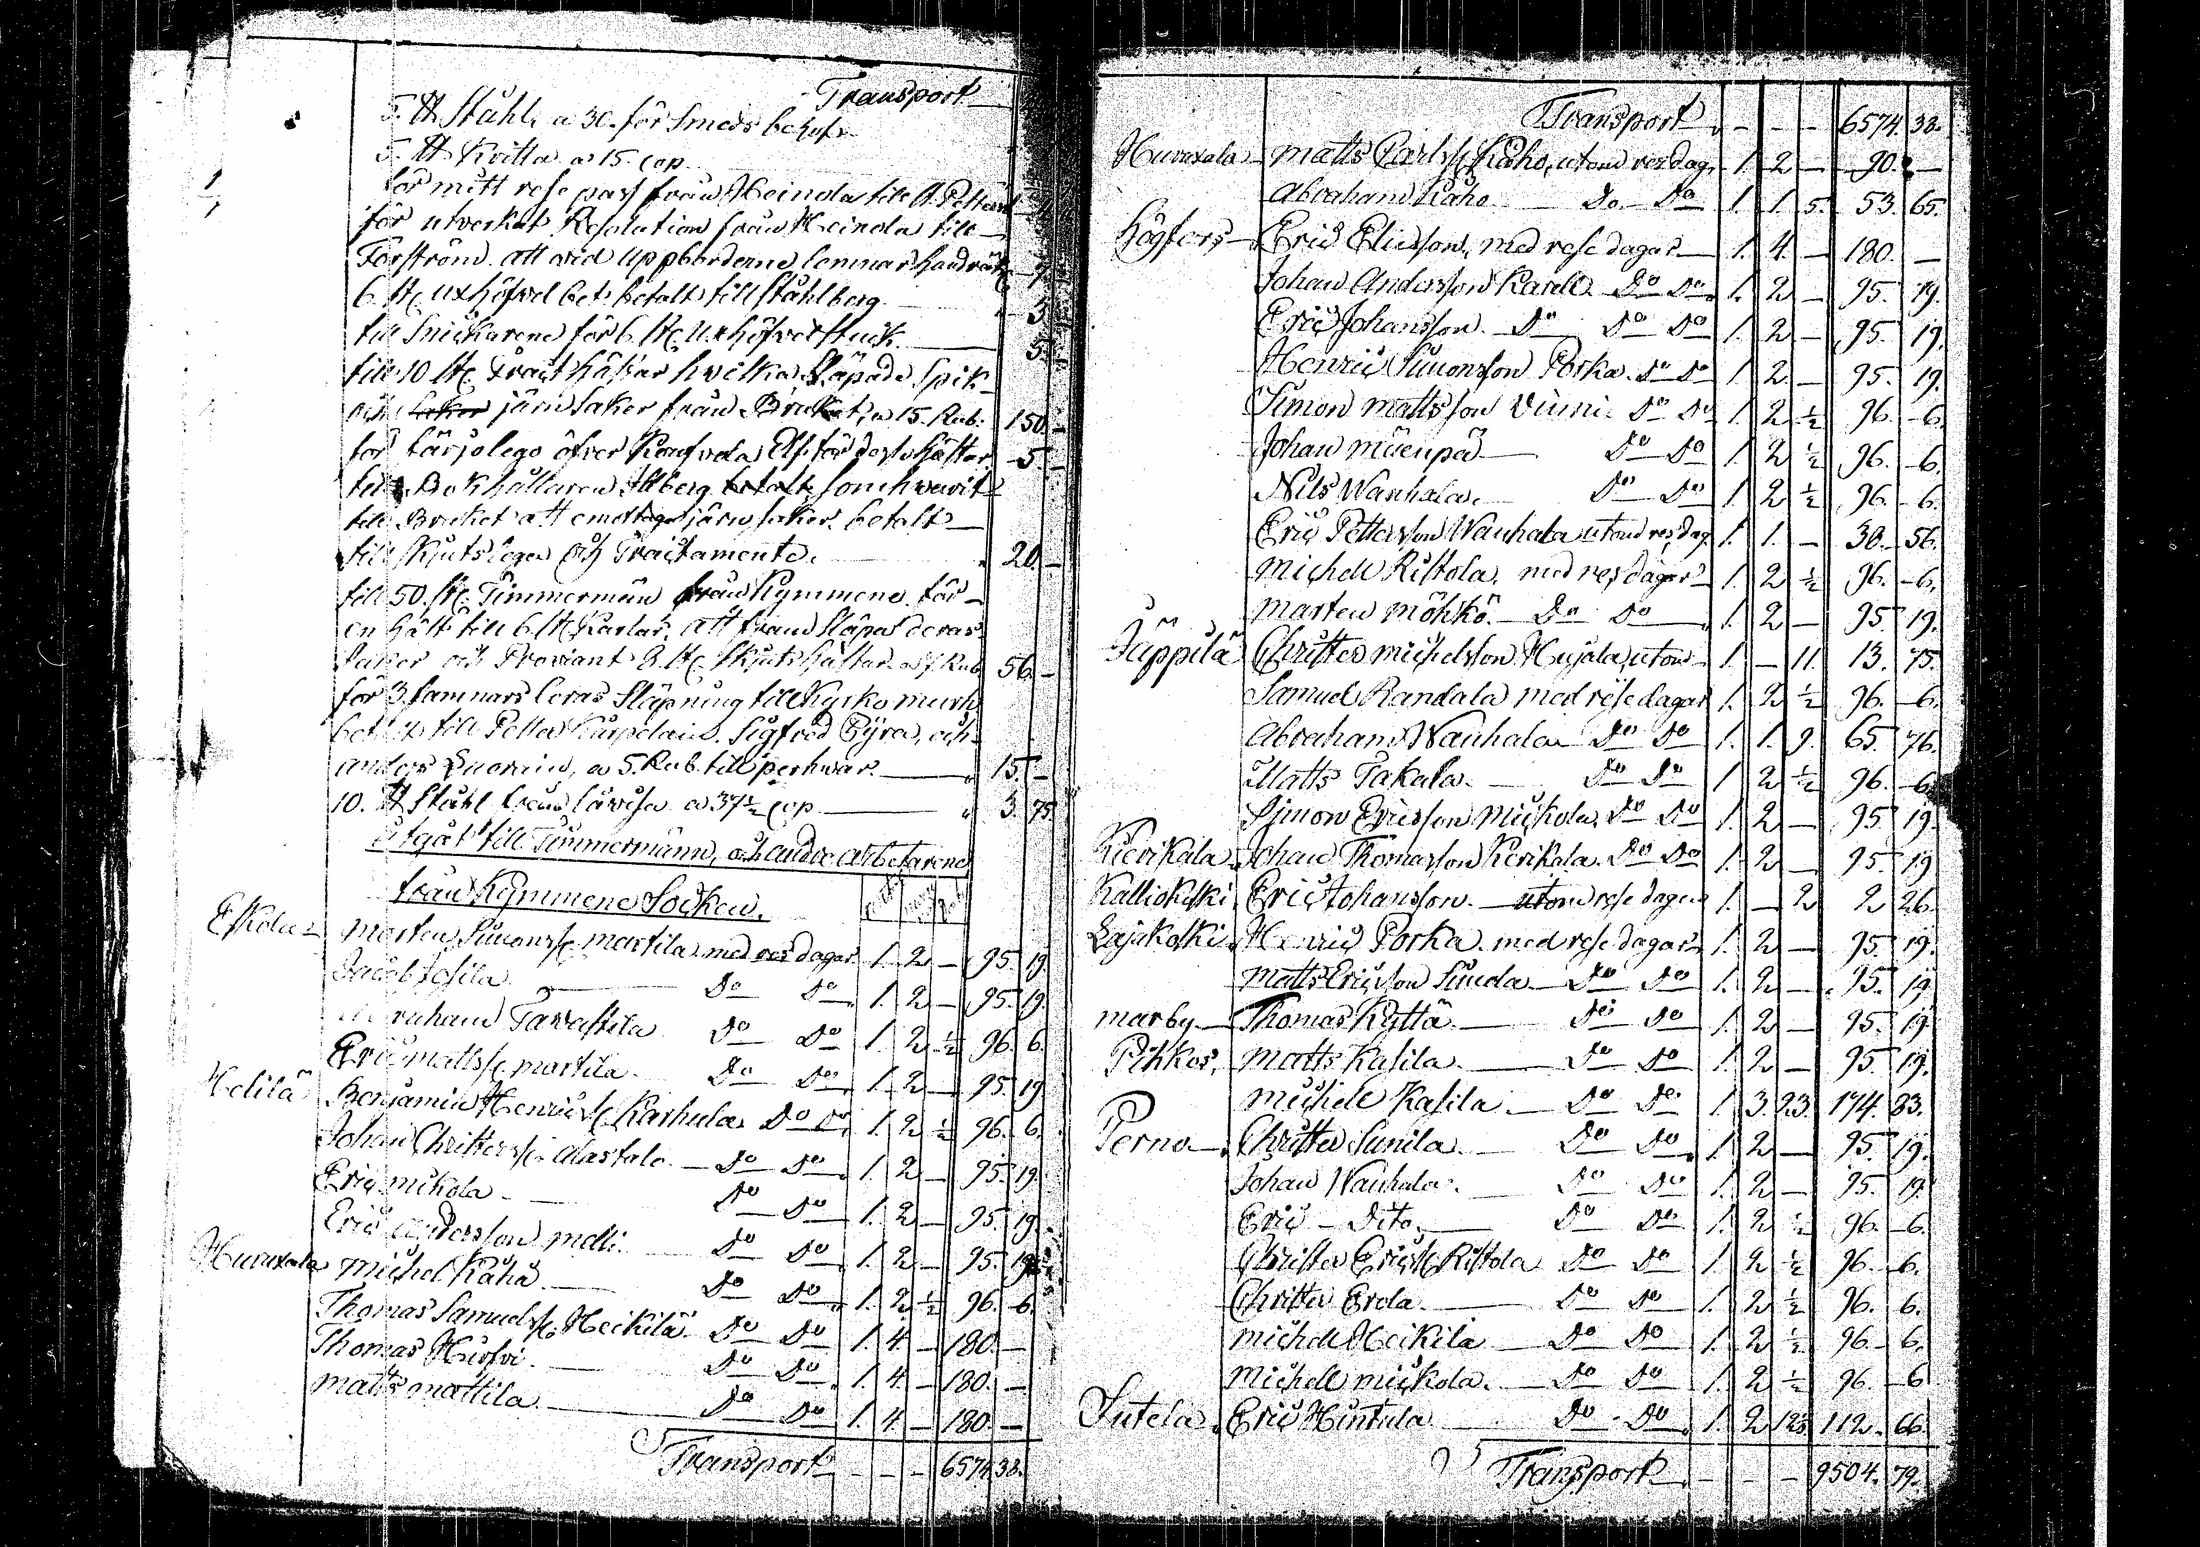 Transport
5. ℔ Ståhl, a 30. för Smeds behof
5. ℔ Kritta a 15. cop
för mitt rese pass från Heinola till
för utverkat Resolution från Heinola till
Förström att wid uppbörderne lemnar handräk
6. st. uxhöfved bet. betalt till Ståhlberg
till Snickarene för 6. st. uxhöfved stuck 5.
till 10 st. hästar hvilka släpade Spik
och järn saker från Bruket, a 15. Rub. 150. –
för färjolego öfver Elf för dess hästar 5 –
till Bokhållaren som h warit
till Bruket att emottaga järn saker betalt
till Skjutslega och Tractamente. 20. –
till 50. st. Timmermän från Kymmene för
en hält till 6. st. Karlar, att fram släpa deras
saker och Proviant 8. st. Skjuts hästar a 7. Rub 56. –
för 3 famnars leras släpning till Kyrko murn
bet. till Petter Sigfred Pyrä, och
anders a 5. Rub. till 15. –
10. ℔ Ståhl från a 37½ cop 3. 75.
utgåt till Timmermänn, och andre arbetarene
från Kymmene Socken.
Eskola – Morten Simonss. martila med res dagar 1. 2 – 95. 19.
Jacob Do Do 1. 2 – 95. 19.
Tavastila Do Do 1. 2 ½ 96. 6.
Eric mattss. martila Do Do 1. 2 – 95. 19
Helilä Benjamin Henricss. Karhula Do Do 1. 2 ½ 96. 6.
Johan Christerss. alastalo – Do Do 1. 2 – 95. 19.
Eric mikola – Do Do 1. 2 – 95. 19.
Eric andersson Do Do 1. 2 – 95. 19.
Huruxala michel Kähä Do Do 1. 2 ½ 96. 6.
Thomas Samuelss. Heikilä Do Do 1. 4. – 180. –
Thomas Hirfvi Do Do 1. 4. – 180. –
matts mattila Do Do 1. 4. – 180. –
Transport – – – 6574. 38.
Transport – – – 6574. 38.
Huruxala – matts Carlss. Kähö, utom res dag. 1. 2 – 90. –
Abraham Kähö Do Do 1. 1. 5. 53. 65.
Högfors – Eric Eliasson, med rese dagar 1. 4. – 180. –
Johan Andersson Do Do 1. 2 – 95. 19.
Eric Johansson – Do Do Do 1. 2 – 95. 19.
Henric Simonsson Porka. Do Do 1. 2 – 95. 19.
Simon mattsson Do Do 1. 2 ½ 96. 6.
Johan Do Do 1. 2 ½ 96. 6.
Nils Wanhala. Do Do 1. 2 ½ 96. 6.
Eric Pettersson Wanhala utom res dag 1. 1. – 30. 56.
Michell Ristola, med res dagar 1. 2 ½ 96. 6.
Morten möhkö – Do Do 1. 2 – 95. 19.
Jäppilä Christer michelsson Hujala, utom 1. – 11. 13. 75.
Samuel Randala med rese dagar 1. 2 ½ 96. 6.
Abraham Wanhala Do Do 1. 1. 9. 65. 76.
Matts Takala. Do Do 1 2 ½ 96. 6.
Simon Ericsson Mickola. Do Do 1. 2 – 95. 19.
Kierikala. Johan Thomasson Kerikala. Do Do 1. 2 – 95. 19
Kalliokoski. Eric Johansson. – utom rese dagar 1. – 2 2 26.
Lajakoski. Henric Porka. med rese dagar 1. 2 – 95. 19.
Matts Ericsson Do Do 1. 2 – 95. 19
Marby – Thomas Kyttä. Do Do 1. 2 – 95. 19.
Pihkos. Matts Kasila. Do Do 1. 2 – 95. 19.
Michell Kasila. Do Do 1. 3. 23. 174. 83.
Perno – Christer Sunila. Do Do 1. 2 – 95. 19.
Johan Wanhala. Do Do 1. 2 – 95. 19.
Eric – Dito. Do Do 1. 2 ½ 96. 6.
Christer Ericss. Ristola Do Do 1. 2 ½ 96. 6.
Christer Erola. Do Do 1. 2 ½ 96. 6.
Michell Heikilä Do Do 1. 2 ½ 96. 6.
Michell mickola. Do Do 1. 2 ½ 96. 6
Sutela. Eric Hintula Do Do 1. 2 112. 66.
Transport – – – 9504. 79.